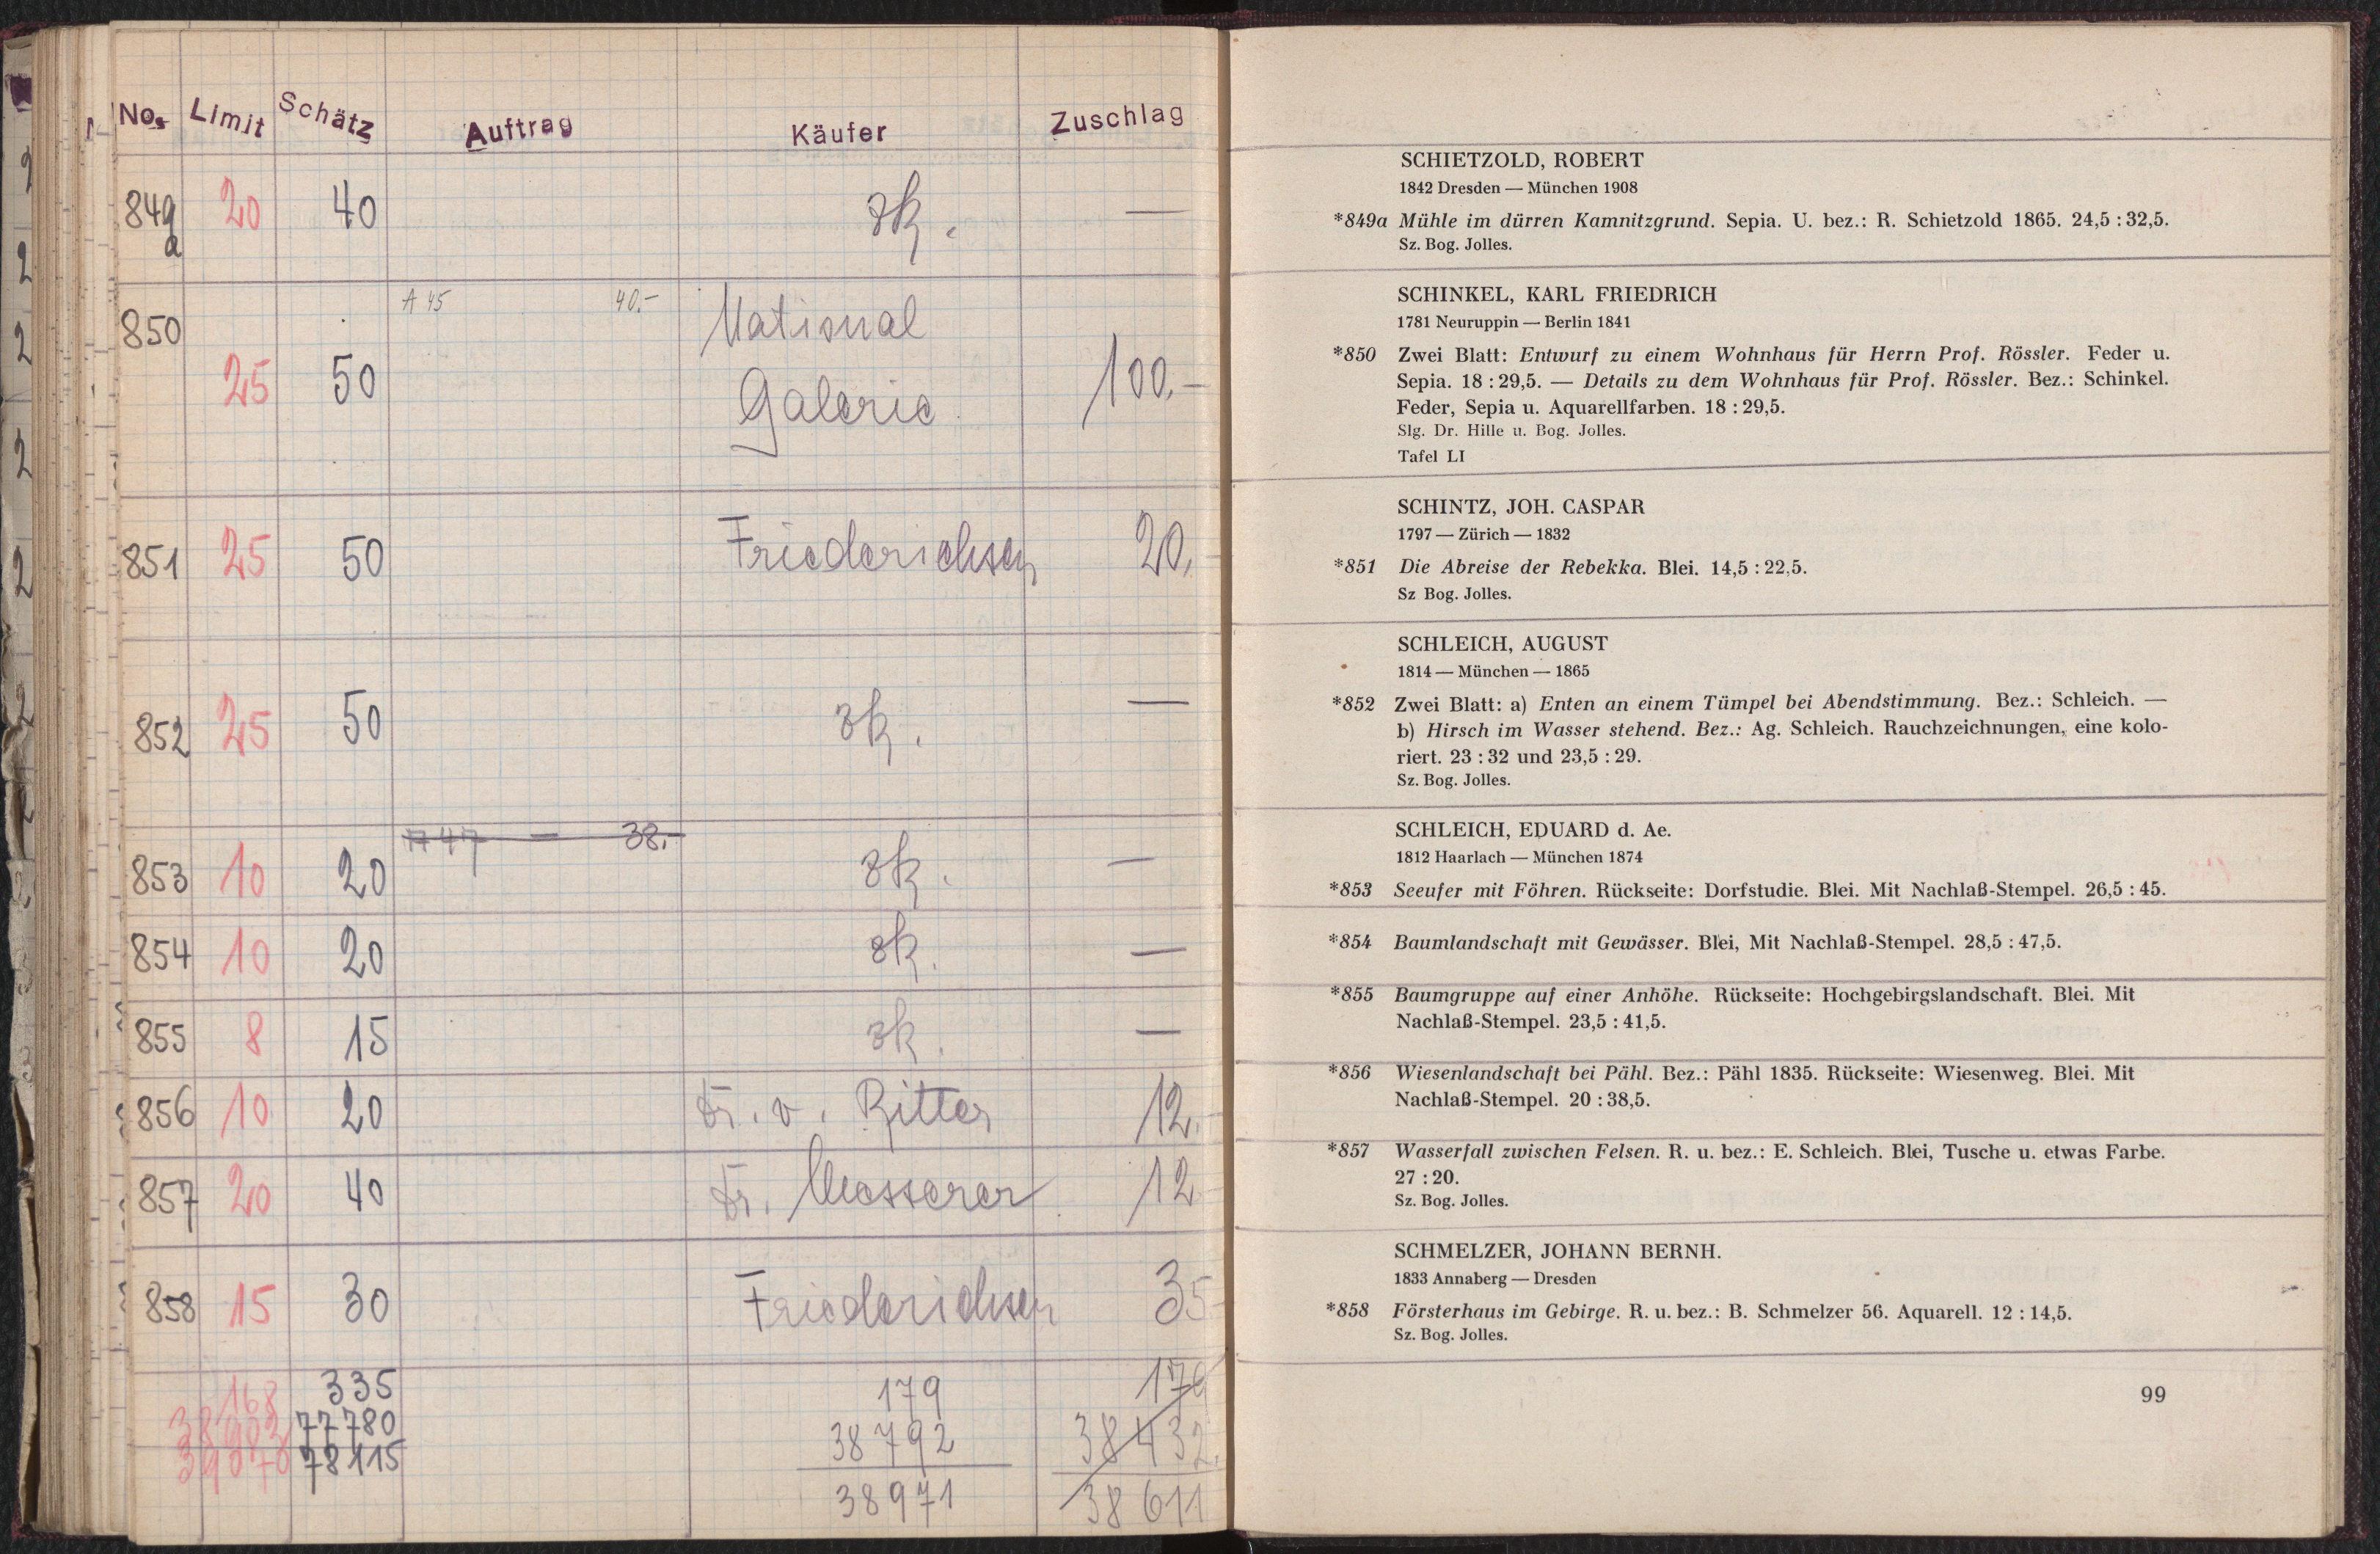 No. Limit Schätz Auftrag Käufer Zuschlag
849a 20 40 zk. —
A 45 40.-
850 25 50 National Galerie 100.-
851 25 50 Friederichsen 20,-
852 25 50 zk. —
A 47 — 38.-
853 10 20 zk. —
854 10 20 zk. —
855 8 15 zk. —
856 10 20 Dr. v. Ritter 12.-
857 20 40 Dr. Messerer 12-
858 15 30 Friederichsen 35-
168 335 179 179
38902 77780 38792 38432.
39070 78115 38971 38611
SCHIETZOLD, ROBERT
1842 Dresden — München 1908
*849a Mühle im dürren Kamnitzgrund. Sepia. U. bez.: R. Schietzold 1865. 24,5 : 32,5.
Sz. Bog. Jolles.
SCHINKEL, KARL FRIEDRICH
1781 Neuruppin — Berlin 1841
*850 Zwei Blatt: Entwurf zu einem Wohnhaus für Herrn Prof. Rössler. Feder u.
Sepia. 18 : 29,5. — Details zu dem Wohnhaus für Prof. Rössler. Bez.: Schinkel.
Feder, Sepia u. Aquarellfarben. 18 : 29,5.
Slg. Dr. Hille u. Bog. Jolles.
Tafel LI
SCHINTZ, JOH. CASPAR
1797 — Zürich — 1832
*851 Die Abreise der Rebekka. Blei. 14,5 : 22,5.
Sz Bog. Jolles.
SCHLEICH, AUGUST
1814 — München — 1865
*852 Zwei Blatt: a) Enten an einem Tümpel bei Abendstimmung. Bez.: Schleich. —
b) Hirsch im Wasser stehend. Bez.: Ag. Schleich. Rauchzeichnungen, eine kolo-
riert. 23 : 32 und 23,5 : 29.
Sz. Bog. Jolles.
SCHLEICH, EDUARD d. Ae.
1812 Haarlach — München 1874
*853 Seeufer mit Föhren. Rückseite: Dorfstudie. Blei. Mit Nachlaß-Stempel. 26,5 : 45.
*854 Baumlandschaft mit Gewässer. Blei, Mit Nachlaß-Stempel. 28,5 : 47,5.
*855 Baumgruppe auf einer Anhöhe. Rückseite: Hochgebirgslandschaft. Blei. Mit
Nachlaß-Stempel. 23,5 : 41,5.
*856 Wiesenlandschaft bei Pähl. Bez.: Pähl 1835. Rückseite: Wiesenweg. Blei. Mit
Nachlaß-Stempel. 20 : 38,5.
*857 Wasserfall zwischen Felsen. R. u. bez.: E. Schleich. Blei, Tusche u. etwas Farbe.
27 : 20.
Sz. Bog. Jolles.
SCHMELZER, JOHANN BERNH.
1833 Annaberg — Dresden
*858 Försterhaus im Gebirge. R. u. bez.: B. Schmelzer 56. Aquarell. 12 : 14,5.
Sz. Bog. Jolles.
99